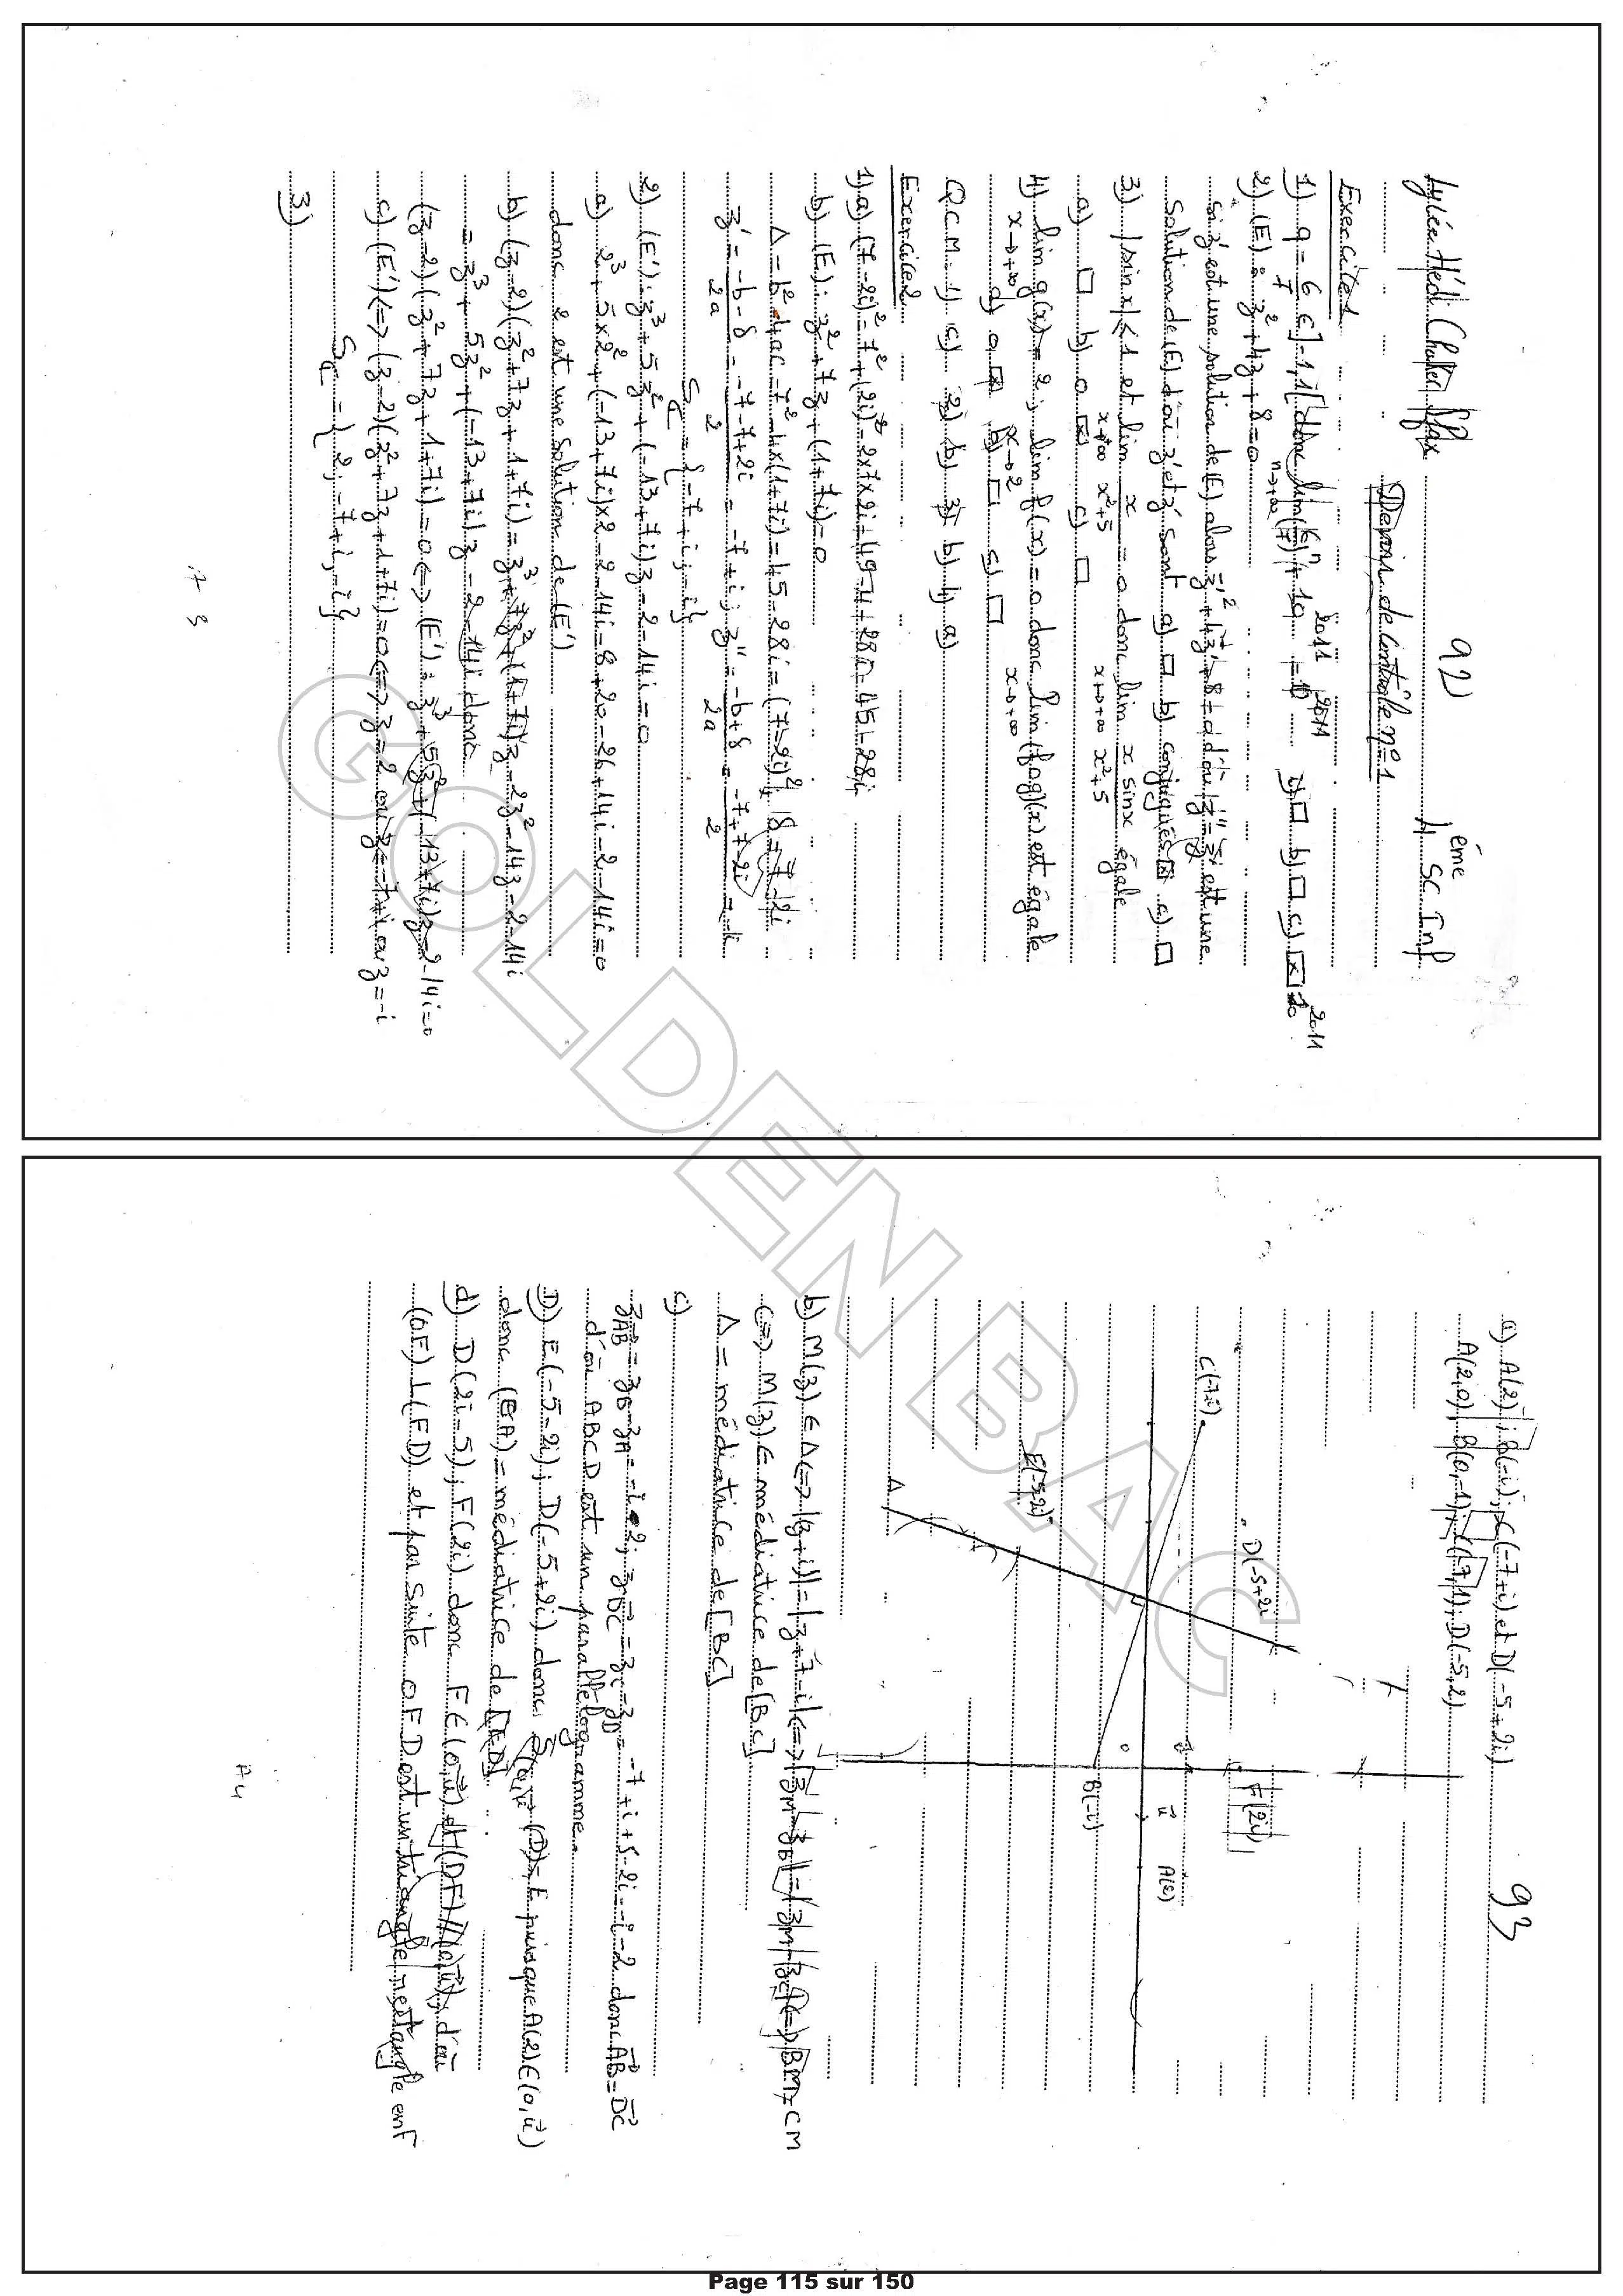 92
Lycée Hédi Chaker Sfax 4ème Sc Inf
Devoir de Contrôle n°1
Exercice 1
1) q = 6/7 ∈ ]-1,1[ donc lim n→+∞ (6/7)^n + 10^2011 = 10^2011 a) □ b) □ c) ☒ 10^2011
2) (E) : z² + 4z + 8 = 0
si z' est une solution de (E) alors z'² + 4z' + 8 = 0 d'où z'' = z̄' est une
Solution de (E) d'où z' et z'' sont a) □ b) conjugués ☒ c) □
3) |sin x| ≤ 1 et lim x→+∞ x/(x²+5) = 0 donc lim x→+∞ x sin x/(x²+5) égale
a) □ b) 0 ☒ c) □
4) lim x→+∞ g(x) = 2, lim x→2 f(x) = 0 donc lim x→+∞ (fog)(x) est égale
a) 0 ☒ b) □ c) □
QCM 1) c) 2) b) 3) b) 4) a)
Exercice 2
1) a) (7-2i)² = 7² + (2i)² - 2x7x2i = 49 - 4 - 28i = 45 - 28i
b) (E) : z² + 7z + (1+7i) = 0
Δ = b² - 4ac = 7² - 4x(1+7i) = 45 - 28i = (7-2i)², δ = 7-2i
z' = (-b-δ)/2a = (-7-7+2i)/2 = -7+i ; z'' = (-b+δ)/2a = (-7+7-2i)/2 = -i
S_ℂ = {-7+i, -i}
2) (E') : z³ + 5z² + (-13+7i)z - 2 - 14i = 0
a) 2³ + 5x2² + (-13+7i)x2 - 2 - 14i = 8 + 20 - 26 + 14i - 2 - 14i = 0
donc 2 est une solution de (E')
b) (z-2)(z² + 7z + 1 + 7i) = z³ + 7z² + (1+7i)z - 2z² - 14z - 2 - 14i
= z³ + 5z² + (-13+7i)z - 2 - 14i donc
(z-2)(z² + 7z + 1+7i) = 0 <=> (E') : z³ + 5z² + (-13+7i)z - 2 - 14i = 0
c) (E') <=> (z-2)(z² + 7z + 1+7i) = 0 <=> z = 2 ou z = -7+i ou z = -i
S_ℂ = {2; -7+i, -i}
3)
93
a) A(2) ; B(-i) ; C(-7+i) et D(-5+2i)
A(2,0), B(0,-1), C(-7,1), D(-5,2)
D(-5+2i
F(2i)
E(-5-2i)
B(-i)
A(2)
o
u⃗
Δ
b) M(z) ∈ Δ <=> |z+i| = |z+7-i| <=> |zM - zB| = |zM - zC| <=> BM = CM
<=> M(z) ∈ médiatrice de [BC]
Δ = médiatrice de [BC]
c)
zAB⃗ = zB - zA = -i - 2 ; zDC⃗ = zC - zD = -7+i+5-2i = -i-2 donc AB⃗ = DC⃗
d'où ABCD est un parallélogramme.
D) E(-5-2i) ; D(-5+2i) donc S(o,u⃗) (D) = E puisque A(2) ∈ (o,u⃗)
donc (OA) = médiatrice de [ED]
d) D(2i-5) ; F(2i) donc F ∈ (o,v⃗) et (DF) // (o,u⃗), d'où
(OF) ⊥ (FD) et par suite OFD est un triangle rectangle en F
GOLDEN BAC
Page 115 sur 150